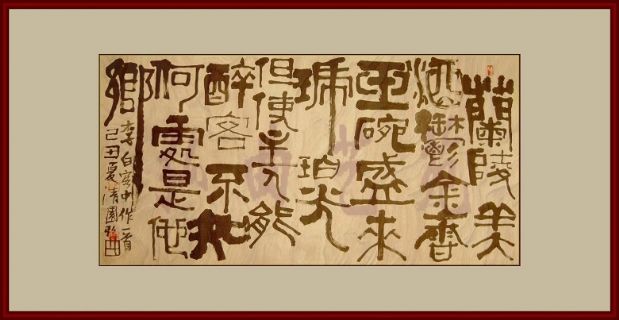 蘭陵美
酒鬱金香
玉碗盛來
琥珀光
但使主人能
醉客不知
何處是他
鄉
李白客中作一首
己丑夏清園